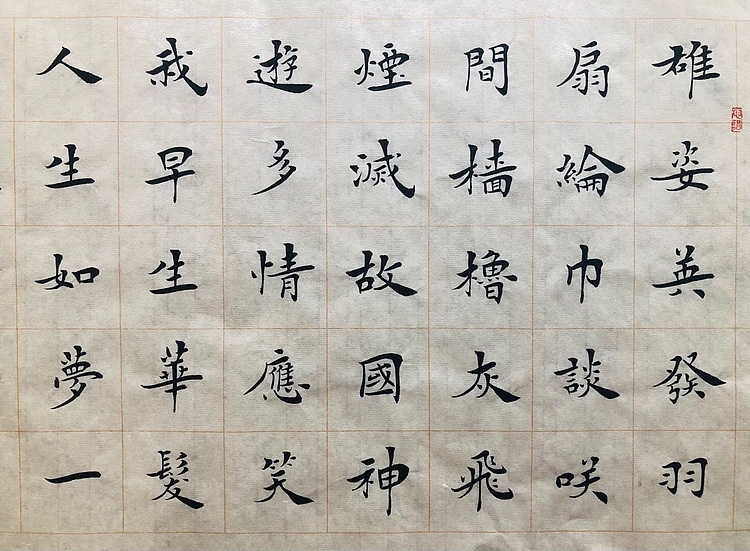 雄姿英發羽
扇綸巾談咲
間檣櫓灰飛
煙滅故國神
遊多情應笑
我早生華髮
人生如夢一